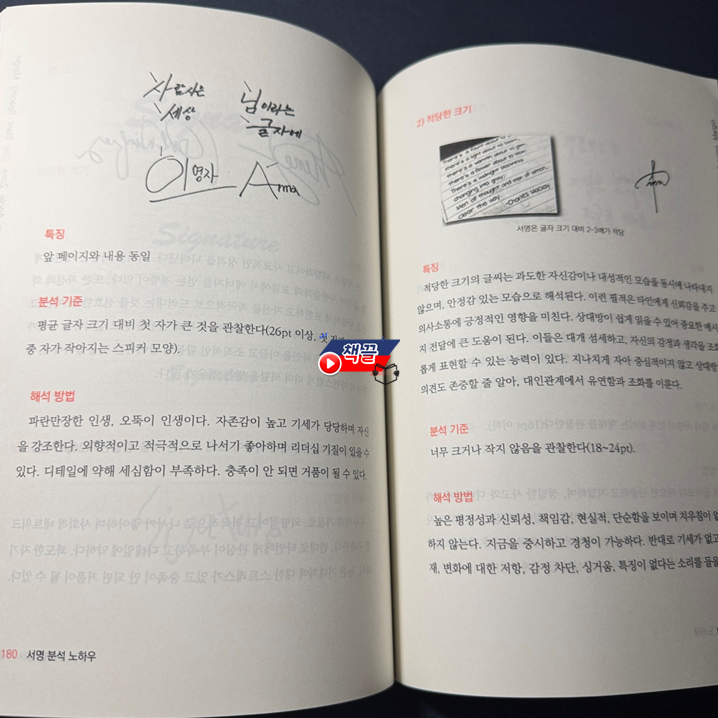 사람사는
세상
님이라는
글자에
이영자
Anna
특징
앞 페이지와 내용 동일
분석 기준
평균 글자 크기 대비 첫 자가 큰 것을 관찰한다(26pt 이상, 첫
중 자가 작아지는 스피커 모양).
해석 방법
파란만장한 인생, 오뚝이 인생이다. 자존감이 높고 기세가 당당하며 자신
을 강조한다. 외향적이고 적극적으로 나서기 좋아하며 리더십 기질이 있을 수
있다. 디테일에 약해 세심함이 부족하다. 충족이 안 되면 거품이 될 수 있다.
180 서명 분석 노하우
책끌
2) 적당한 크기
there's a woman about to
there's a flower about to
there's a midnight blackness
changing into gray;
Men of thought and men of action,
clear the way.
-Charles Mackay
서명은 글자 크기 대비 2~3배가 적당
특징
적당한 크기의 글씨는 과도한 자신감이나 내성적인 모습을 동시에 나타내지
않으며, 안정감 있는 모습으로 해석된다. 이런 필적은 타인에게 신뢰감을 주고
의사소통에 긍정적인 영향을 미친다. 상대방이 쉽게 읽을 수 있어 중요한 메시
지 전달에 큰 도움이 된다. 이들은 대개 섬세하고, 자신의 감정과 생각을 조화
롭게 표현할 수 있는 능력이 있다. 지나치게 자아 중심적이지 않고 상대방
의견도 존중할 줄 알아, 대인관계에서 유연함과 조화를 이룬다.
분석 기준
너무 크거나 작지 않음을 관찰한다(18~24pt).
해석 방법
높은 평정성과 신뢰성, 책임감, 현실적, 단순함을 보이며 치우침이 없
하지 않는다. 지금을 중시하고 경청이 가능하다. 반대로 기세가 없고
재, 변화에 대한 저항, 감정 차단, 싱거움, 특징이 없다는 소리를 들을